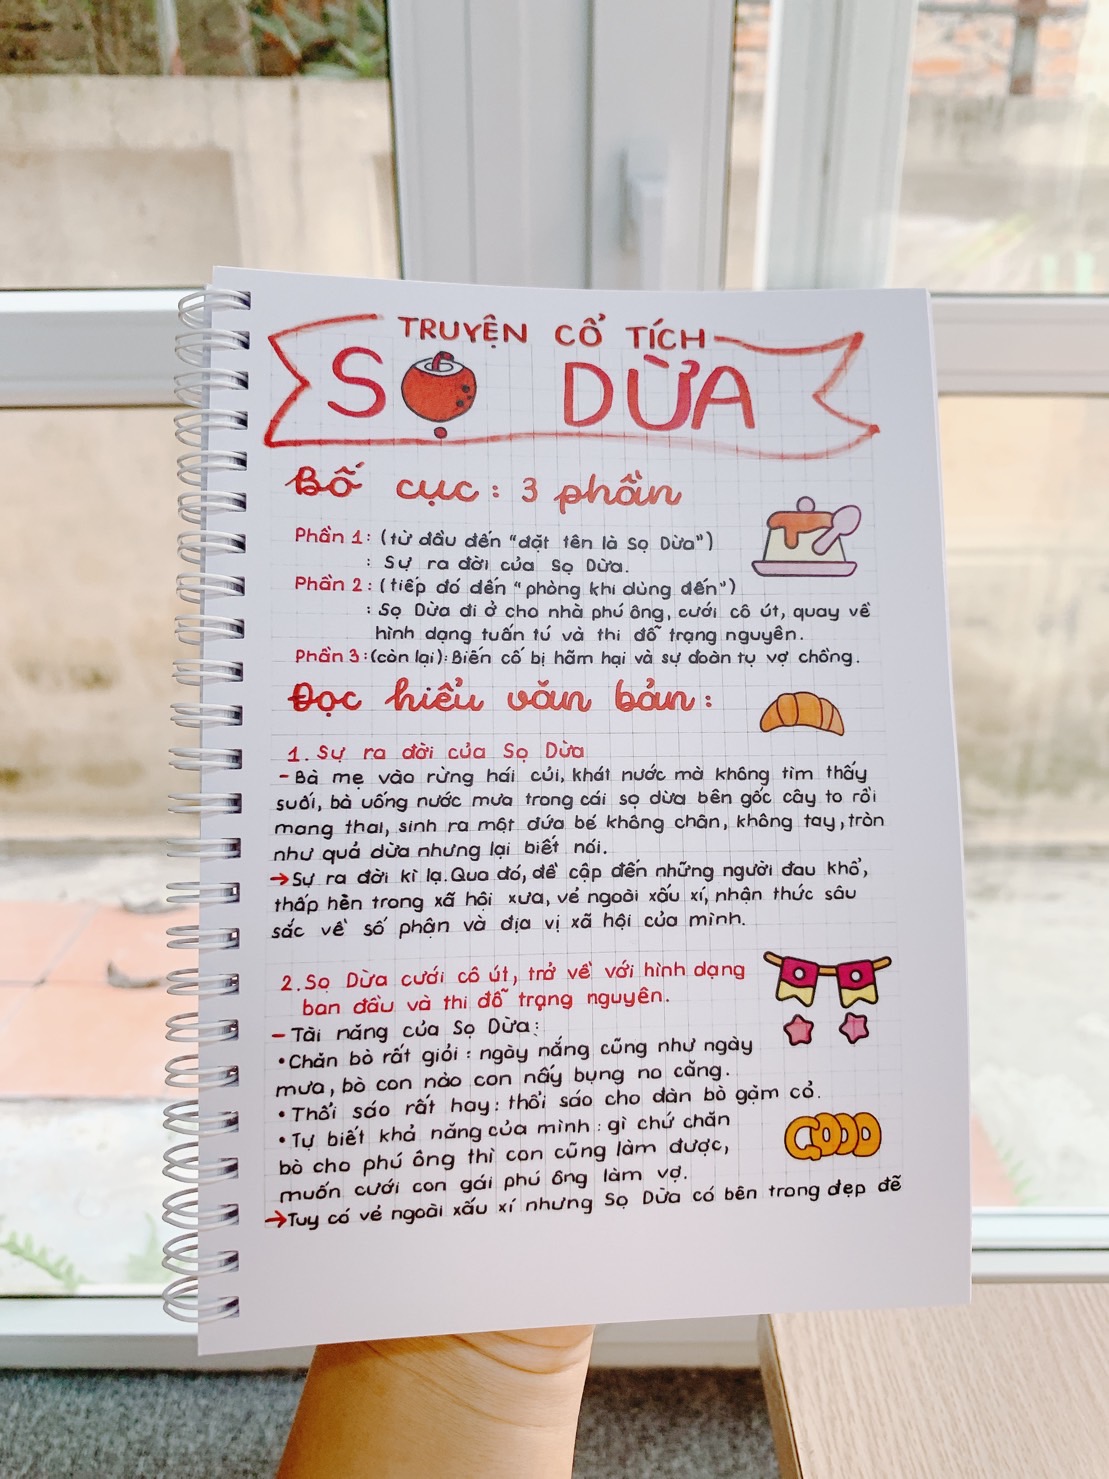 TRUYỆN CỔ TÍCH
SỌ DỪA
Bố cục: 3 phần
Phần 1: (từ đầu đến "đặt tên là Sọ Dừa")
: Sự ra đời của Sọ Dừa.
Phần 2: (tiếp đó đến "phòng khi dùng đến")
: Sọ Dừa đi ở cho nhà phú ông, cưới cô út, quay về
hình dạng tuấn tú và thi đỗ trạng nguyên.
Phần 3: (còn lại): Biến cố bị hãm hại và sự đoàn tụ vợ chồng.
Đọc hiểu văn bản:
1. Sự ra đời của Sọ Dừa
- Bà mẹ vào rừng hái củi, khát nước mà không tìm thấy
suối, bà uống nước mưa trong cái sọ dừa bên gốc cây to rồi
mang thai, sinh ra một đứa bé không chân, không tay, tròn
như quả dừa nhưng lại biết nói.
→ Sự ra đời kì lạ. Qua đó, đề cập đến những người đau khổ,
thấp hèn trong xã hội xưa, vẻ ngoài xấu xí, nhận thức sâu
sắc về số phận và địa vị xã hội của mình.
2. Sọ Dừa cưới cô út, trở về với hình dạng
ban đầu và thi đỗ trạng nguyên.
- Tài năng của Sọ Dừa:
• Chăn bò rất giỏi: ngày nắng cũng như ngày
mưa, bò con nào con nấy bụng no căng.
• Thổi sáo rất hay: thổi sáo cho đàn bò gặm cỏ.
• Tự biết khả năng của mình: gì chứ chăn
bò cho phú ông thì con cũng làm được,
muốn cưới con gái phú ông làm vợ.
→ Tuy có vẻ ngoài xấu xí nhưng Sọ Dừa có bên trong đẹp đẽ